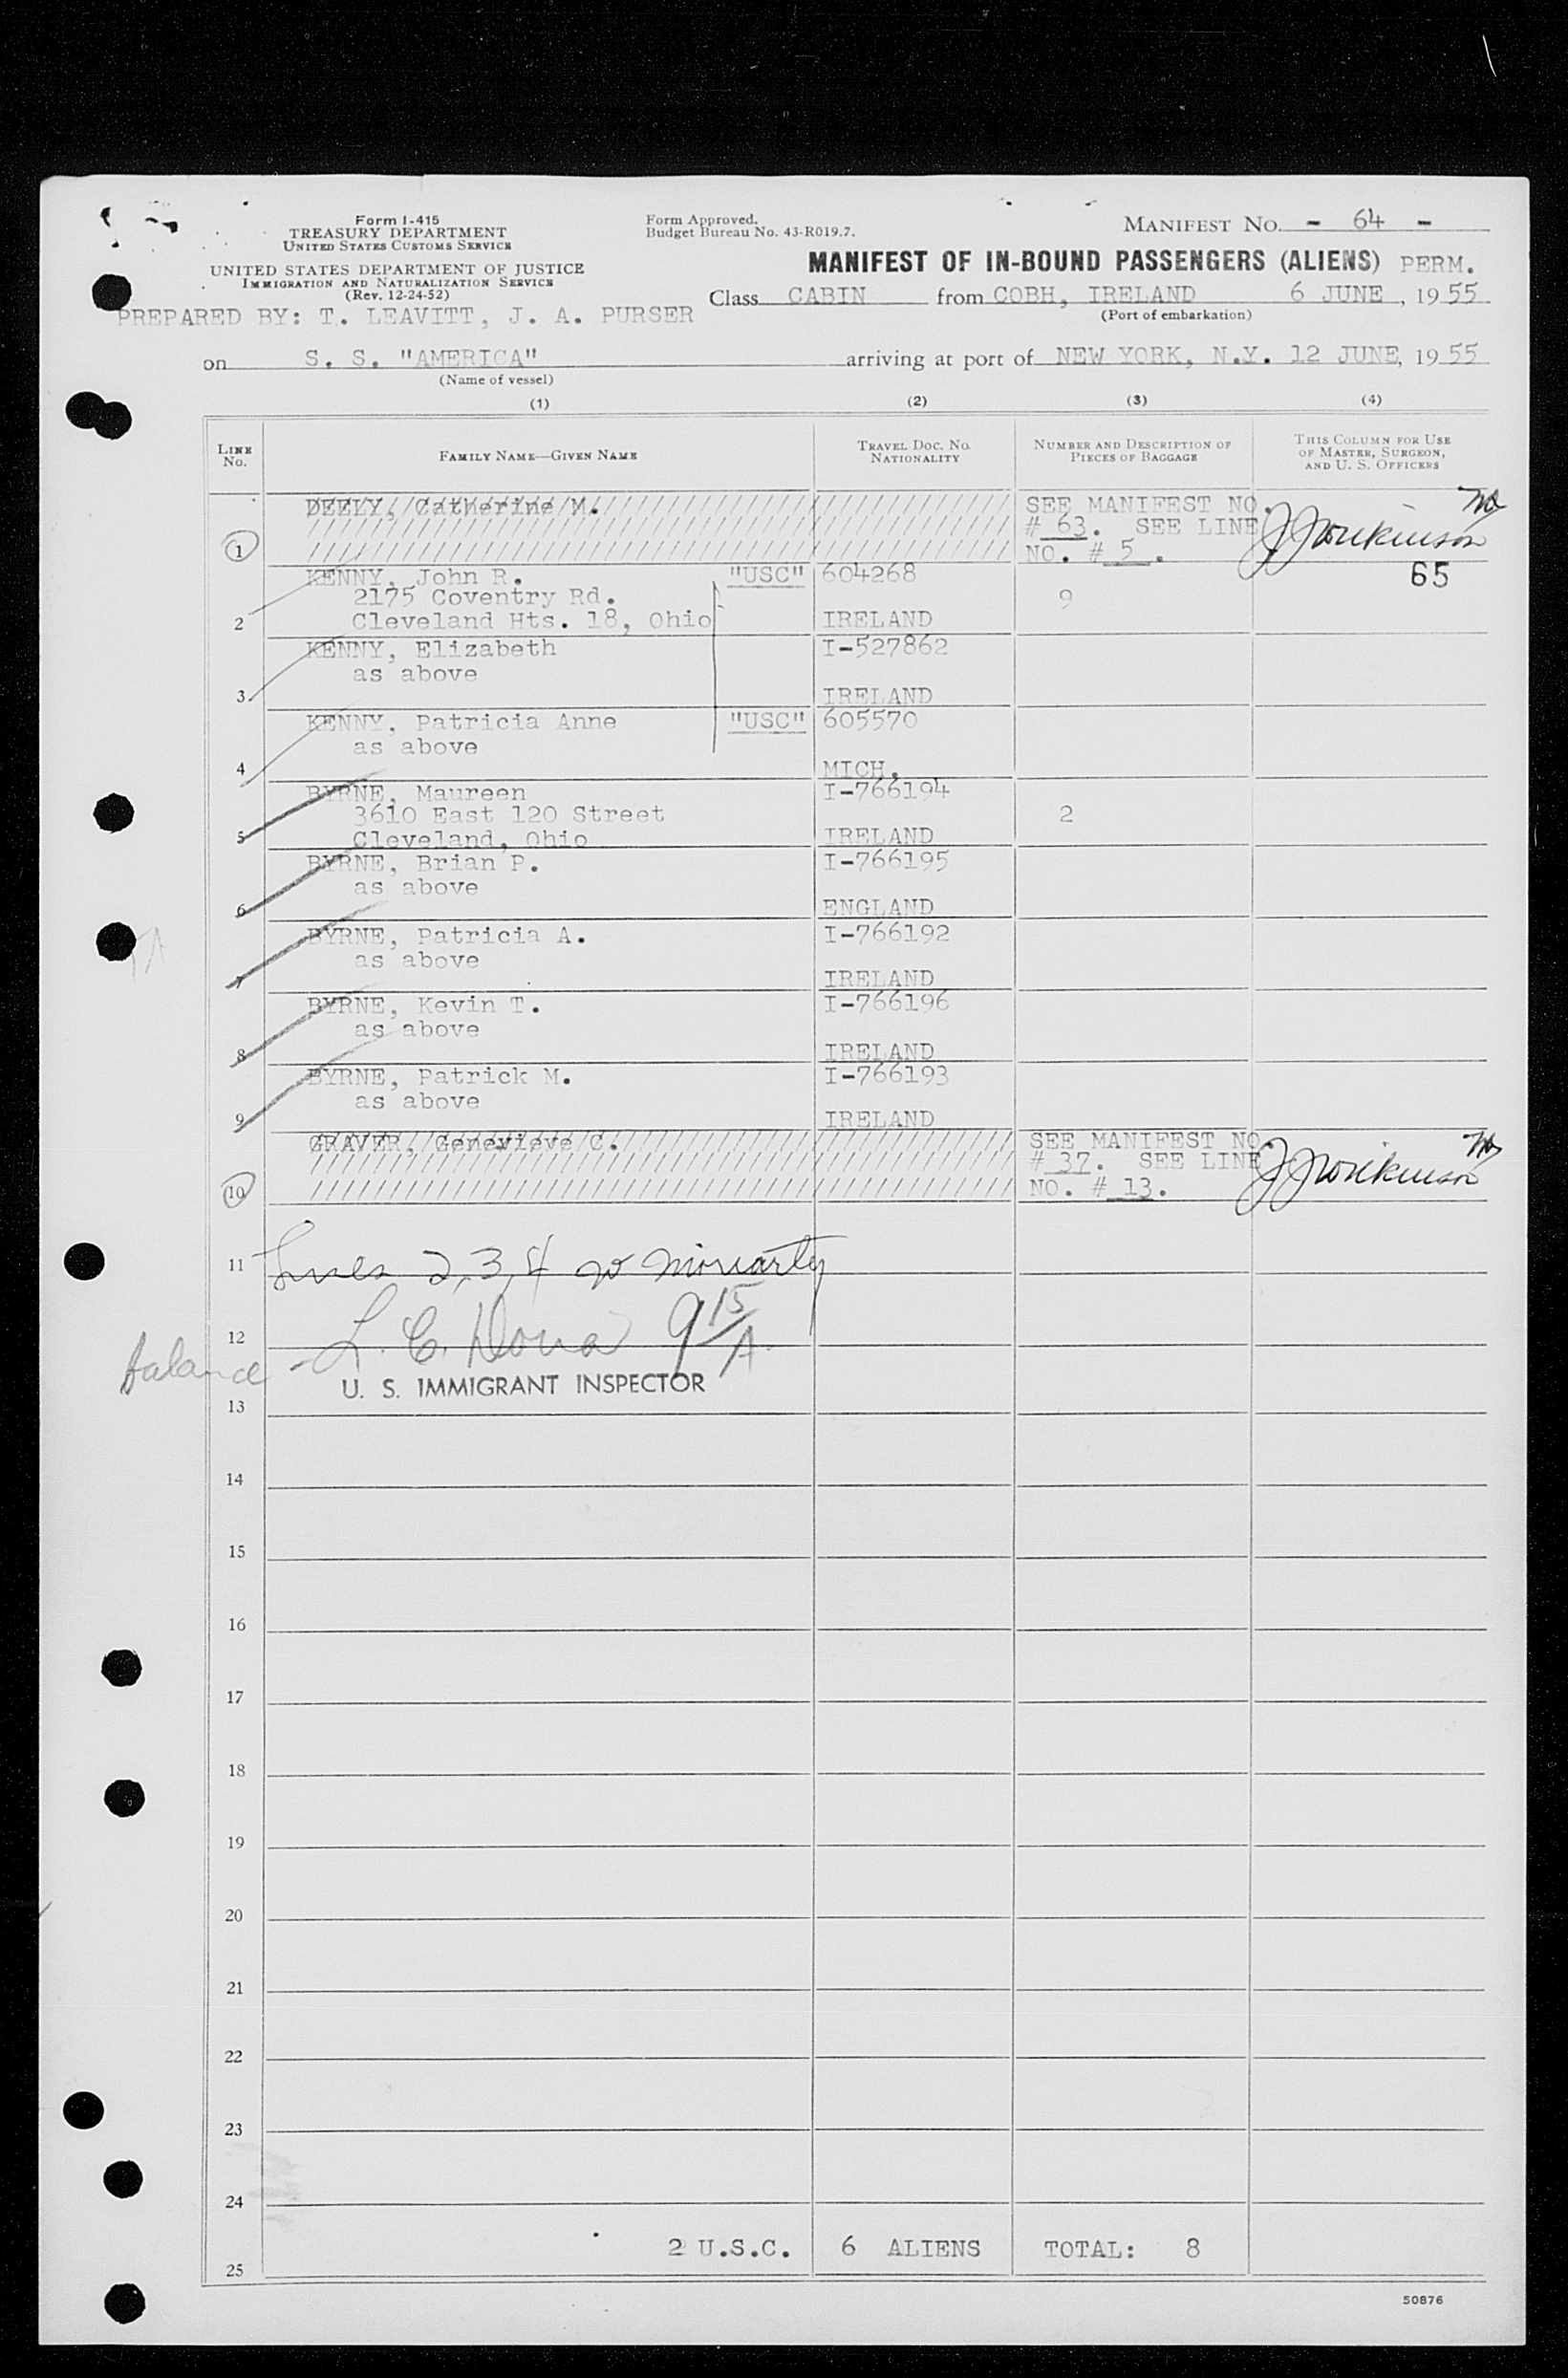 Form I-415
TREASURY DEPARTMENT
UNITED STATES CUSTOMS SERVICE
UNITED STATES DEPARTMENT OF JUSTICE
IMMIGRATION AND NATURALIZATION SERVICE
(Rev. 12-24-52)
PREPARED BY: T. LEAVITT, J. A. PURSER
Form Approved.
Budget Bureau No. 43-R019.7.
MANIFEST NO. - 64 -
MANIFEST OF IN-BOUND PASSENGERS (ALIENS) PERM.
Class CABIN from COBH, IRELAND 6 JUNE, 1955
(Port of embarkation)
on S. S. "AMERICA" arriving at port of NEW YORK, N.Y. 12 JUNE, 1955
(Name of vessel)
(1) (2) (3) (4)
LINE No. FAMILY NAME—GIVEN NAME TRAVEL DOC. NO. NATIONALITY NUMBER AND DESCRIPTION OF PIECES OF BAGGAGE THIS COLUMN FOR USE OF MASTER, SURGEON, AND U. S. OFFICERS
1 DEELY, Catherine M. SEE MANIFEST NO.
# 63. SEE LINE
NO. # 5.
65
KENNY, John R. "USC" 604268
2175 Coventry Rd. 9
2 Cleveland Hts. 18, Ohio IRELAND
KENNY, Elizabeth I-527862
as above
3 IRELAND
KENNY, Patricia Anne "USC" 605570
as above
4 MICH.
BYRNE, Maureen I-766194
3610 East 120 Street 2
5 Cleveland, Ohio IRELAND
BYRNE, Brian P. I-766195
as above
6 ENGLAND
BYRNE, Patricia A. I-766192
as above
7 IRELAND
BYRNE, Kevin T. I-766196
as above
8 IRELAND
BYRNE, Patrick M. I-766193
as above
9 IRELAND
GRAVER, Genevieve C. SEE MANIFEST NO.
# 37. SEE LINE
10 NO. # 13.
11 Lines 2, 3, 4 w Moriarty
12 L. C. Dona 9 15/A
balance -
U. S. IMMIGRANT INSPECTOR
13
14
15
16
17
18
19
20
21
22
23
24
2 U.S.C. 6 ALIENS TOTAL: 8
25
50876